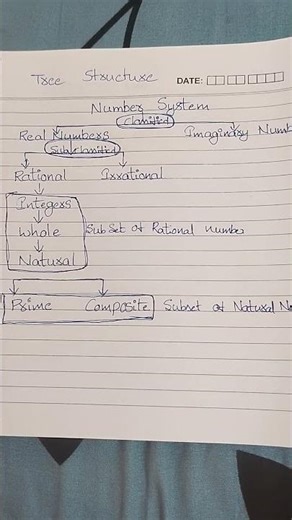 Tree Structure DATE:
Number System
Classified
Real Numbers Imaginary Numb
Subclassified
Rational Irrational
Integers
Whole SubSet of Rational number
Natural
Prime Composite Subset of Natural No